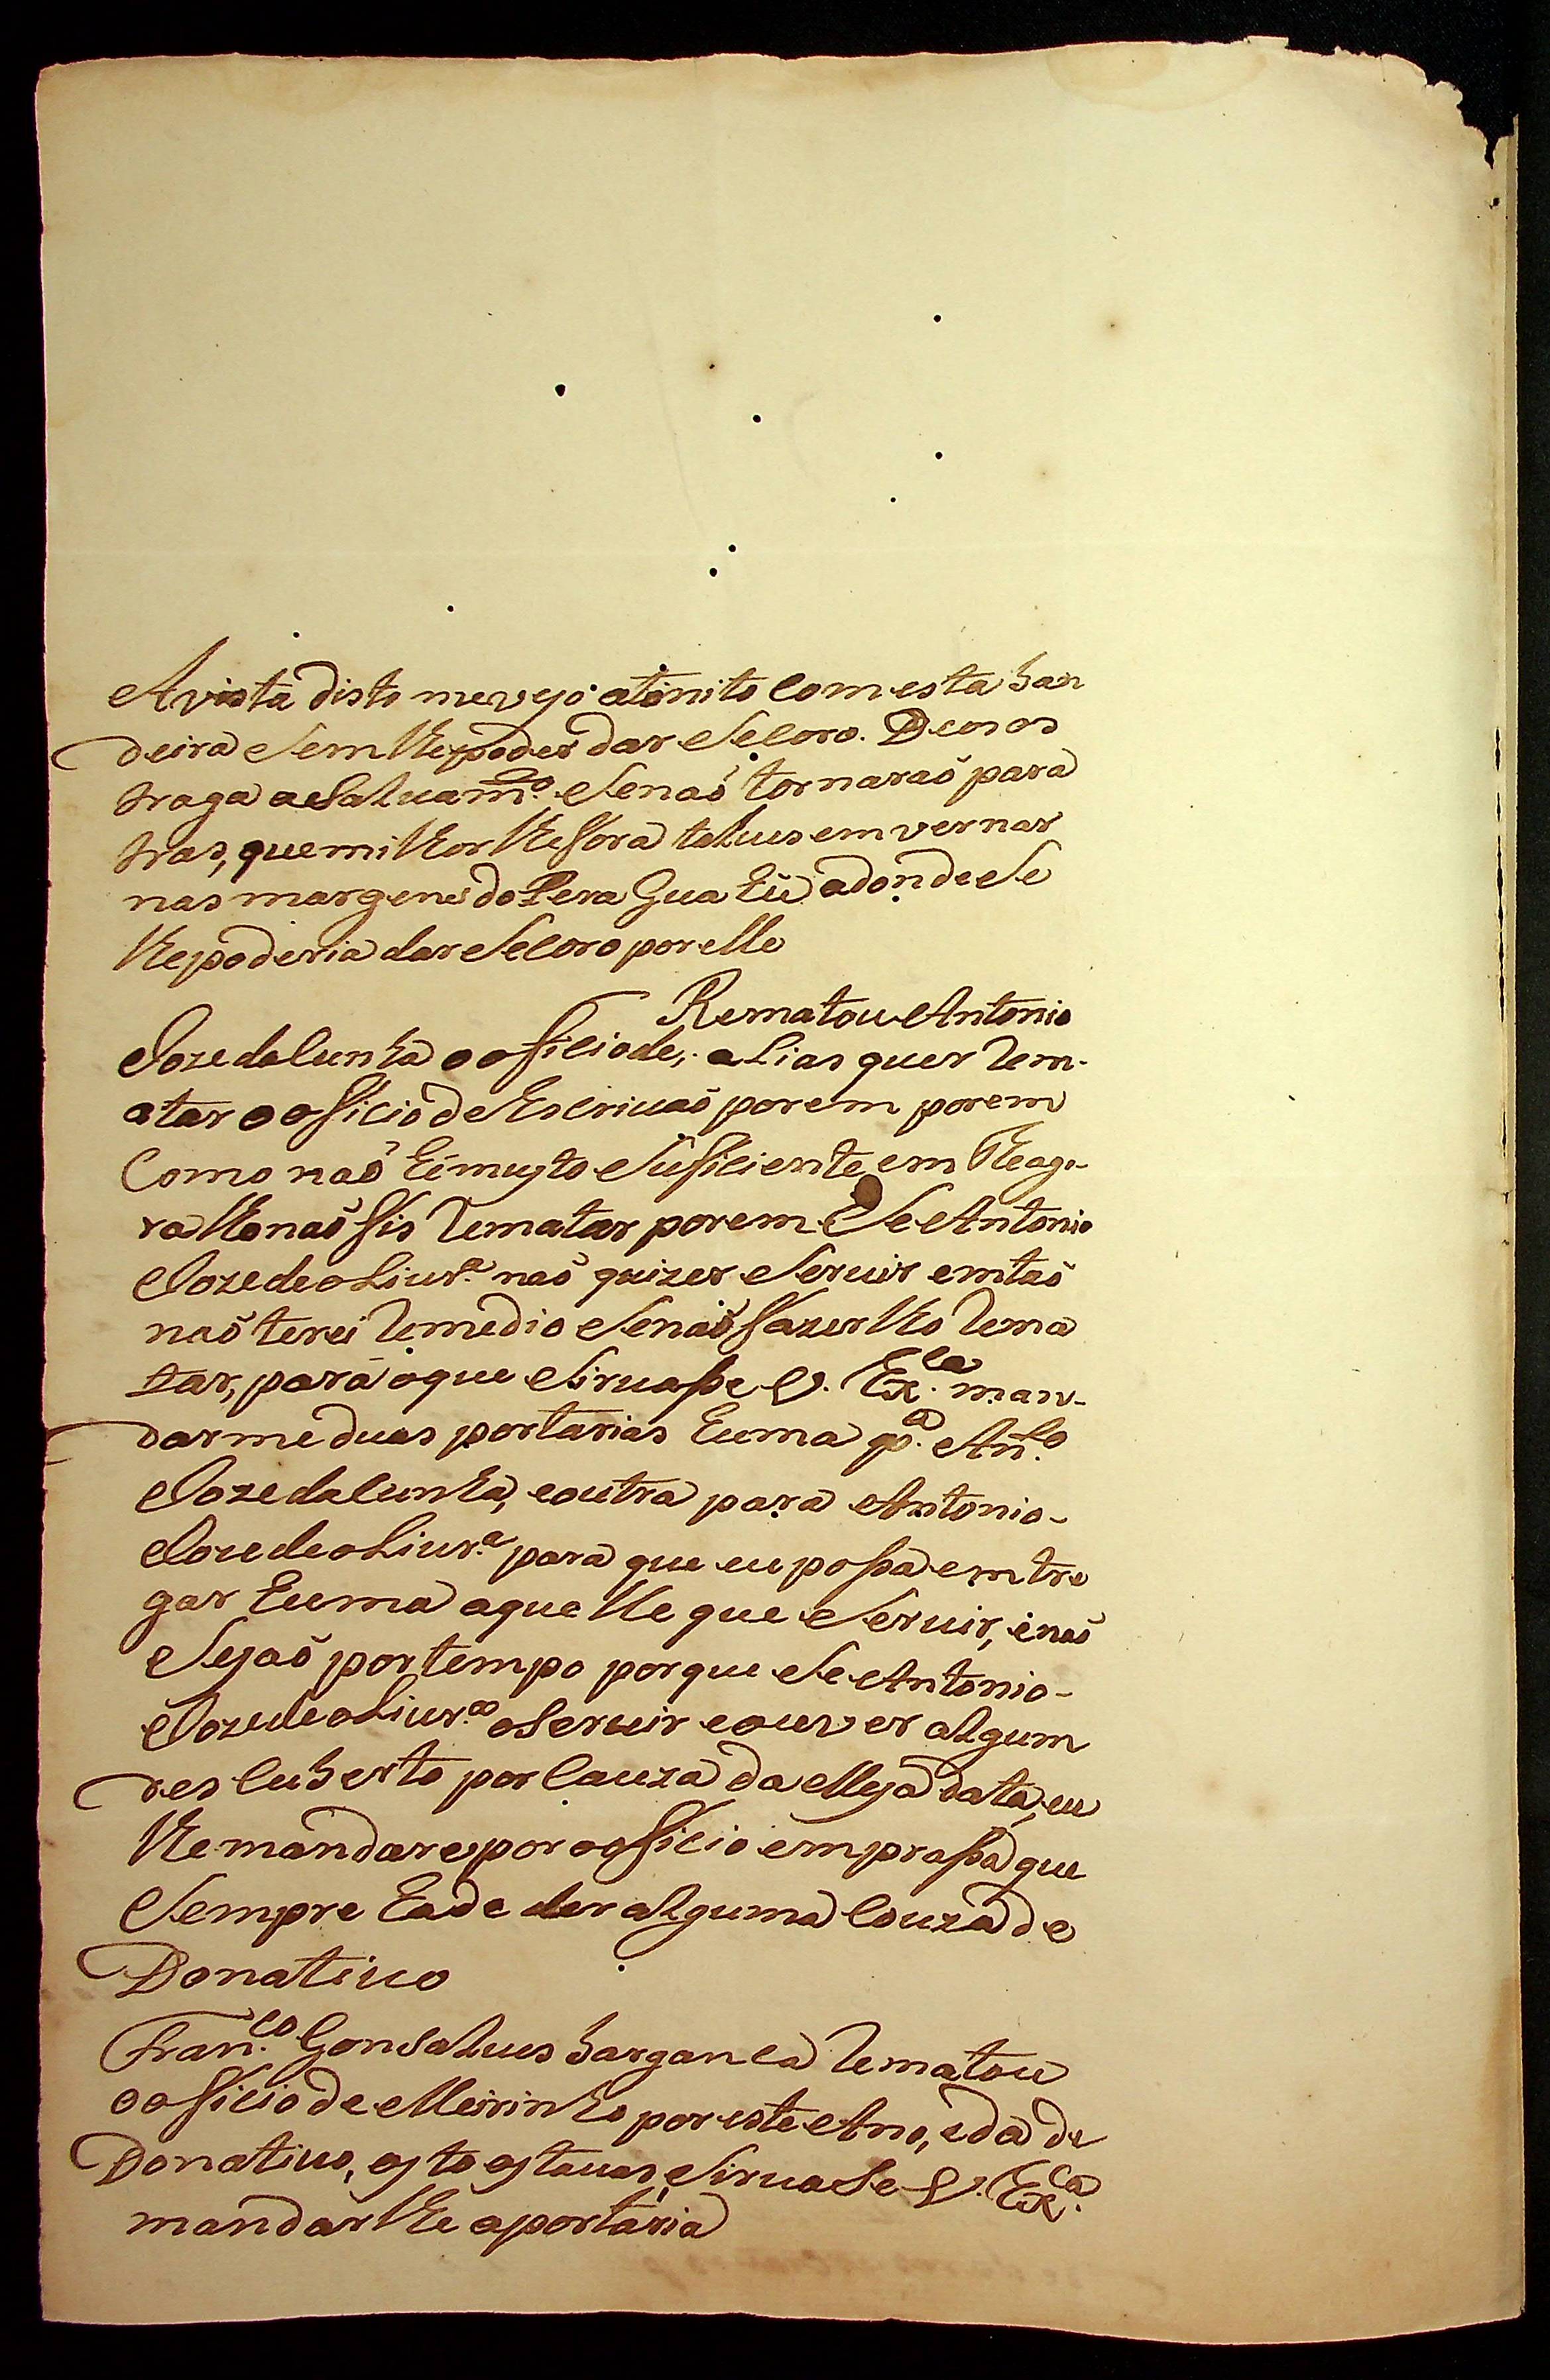 A vista disto mevejo atonito Com esta ban
deira Sem lhe poder dar Secoro. Deos os
traga aSalvam.to Senaõ tornaraõ para
tras, que milhor lhe fora talves em vernar
nas margens do Pera Gua hũ adonde Se
lhe poderia dar Secoro por elle
Rematou Antonio
Joze da Cunha o officio de, alias quer Rem-
atar o officio de Escrivaõ porem porem
Como naõ hé muyto Suficiente em The ago-
ra lho naõ fis Rematar porem Se Antonio
Joze de oLivr.a naõ quizer Servir emtaõ
naõ terei Remedio Senaõ fazer lho Rema
tar, para oque Sirvasse V. Ex.ca man-
dar me duas portarias huma p.a An.to
Joze da Cunha, e outra para Antonio-
Joze de oLivr.a para que eu possa emtre
gar huma aquelle que Servir, e naõ
Sejaõ por tempo porque Se Antonio-
Joze de oLivr.a o Servir e ouver algum
des Cuberto por Cauza da Meya data, eu
lhe mandarey por o officio em prassa que
Sempre hade dar alguma Couza de
Donativo
Fran.co GonSalves bargança Rematou
o officio de Meirinho por este Ano, e dá de
Donativo, oyto oytavas, Sirva Se V. Ex.ca
mandar lhe a portaria